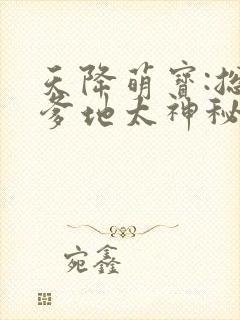 天降萌寶:
爹地太神秘
宛鑫